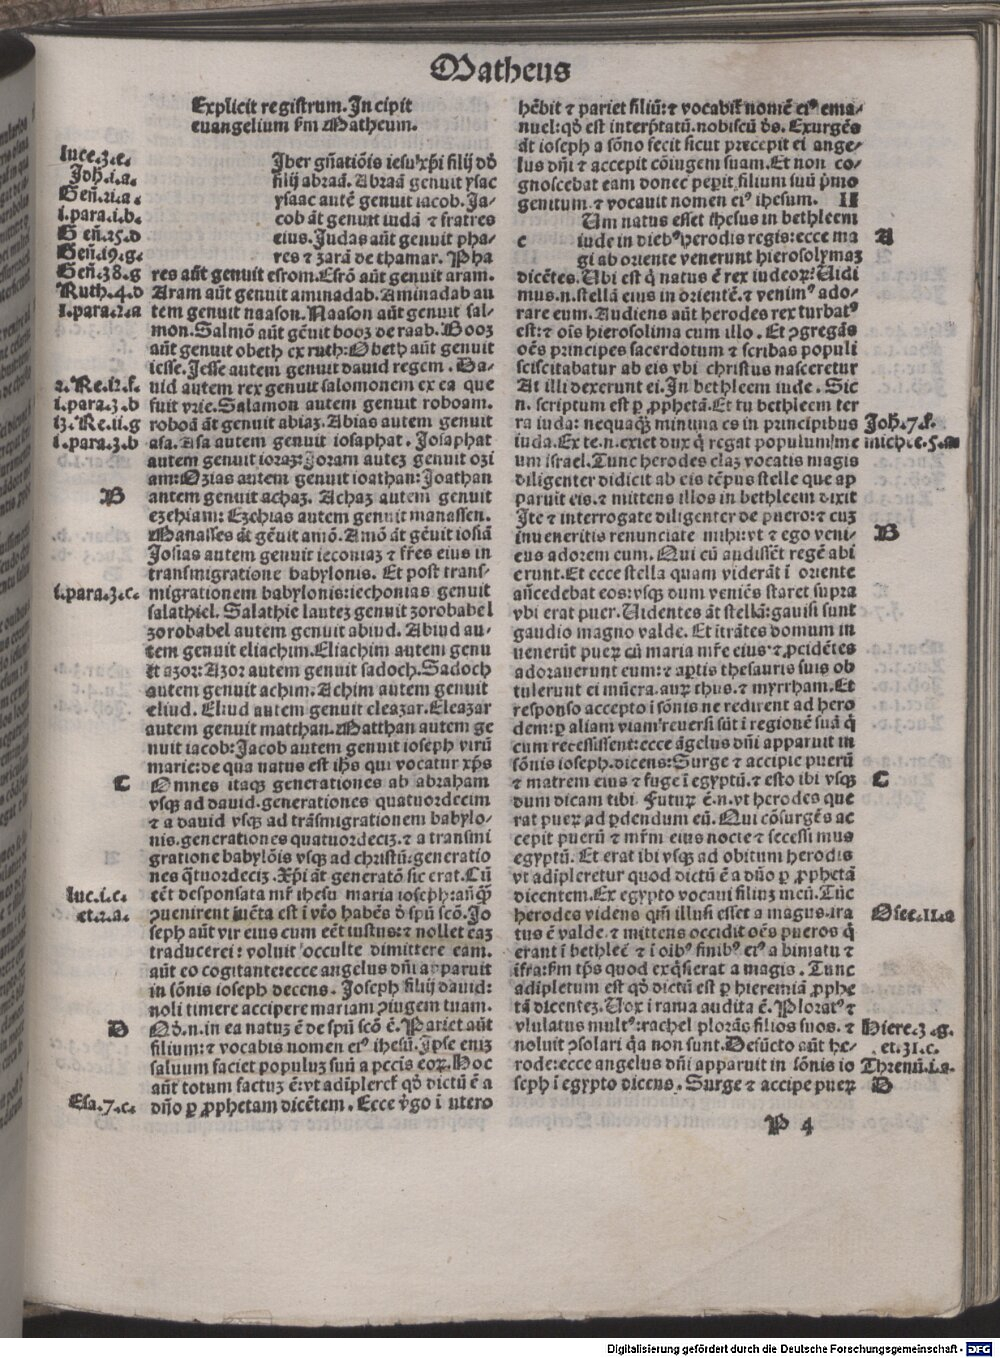 Matheus
Explicit registrum. Incipit
euangelium ẜm Matheum.
luce.3.e.
Joh.i.a.
Geñ.21.a.
i.para.i.b.
Geñ.25.d
Geñ.19.g.
Geñ.38.g
Ruth.4.d
i.para.2.a
2.Re.12.f.
i.para.3.b
13.Re.11.g
i.para.3.b
B
i.para.3.c.
C
luc.i.c.
et.2.a.
D
Esa.7.c.
Iber gñatiōis iesu xp̄i filij dd̄
filij abraā. Abraā genuit ysac
ysaac autē genuit iacob. Ja-
cob āt genuit iudā ⁊ fratres
eius. Judas aūt genuit pha-
res ⁊ zarā de thamar. Pha
res aūt genuit esrom. Esrō aūt genuit aram.
Aram aūt genuit aminadab. Aminadab au
tem genuit naason. Naason aūt genuit sal-
mon. Salmō aūt gēuit booz de raab. Booz
aūt genuit obeth ex ruth: Obeth aūt genuit
iesse. Jesse autem genuit dauid regem. Da-
uid autem rex genuit salomonem ex ea que
fuit vrie. Salamon autem genuit roboam.
roboā āt genuit abiaꝫ. Abias autem genuit
asa. Asa autem genuit iosaphat. Josaphat
autem genuit ioraꝫ: Joram auteꝫ genuit ozi
am: Ozias autem genuit ioathan: Joathan
autem genuit achaz. Achaz autem genuit
ezehiam: Ezehias autem genuit manassen.
Manasses āt gēuit amō. Amō āt gēuit iosiā
Josias autem genuit ieconiaꝫ ⁊ fr̄es eius in
transmigratione babylonis. Et post trans-
migrationem babylonis: iechonias genuit
salathiel. Salathie lauteꝫ genuit zorobabel
zorobabel autem genuit abiud. Abiud au-
tem genuit eliachim. Eliachim autem genu
it azor: Azor autem genuit sadoch. Sadoch
autem genuit achim. Achim autem genuit
eliud. Eliud autem genuit eleazar. Eleazar
autem genuit matthan. Matthan autem ge
nuit iacob: Jacob autem genuit ioseph virū
marie: de qua natus est ihs̄ qui vocatur xp̄s
Omnes itaqꝫ generationes ab abraham
vsqꝫ ad dauid. generationes quatuordecim
⁊ a dauid vsqꝫ ad trāsmigrationem babylo-
nis. generationes quatuordeciꝫ. ⁊ a transmi
gratione babylōis vsqꝫ ad christū: generatio
nes q̄tuordeciꝫ. Xp̄i āt generatō sic erat. Cū
eēt desponsata mr̄ ihesu maria ioseph: añq̄ꝫ
ꝯuenirent iuēta est i vt̄o habēs d̄ spū scō. Jo
seph aūt vir eius cum eēt iustus: ⁊ nollet eaꝫ
traducere: voluit occulte dimittere eam.
aūt eo cogitante: ecce angelus dn̄i apparuit
in sōnis ioseph decens. Joseph filij dauid:
noli timere accipere mariam ꝯiugem tuam.
Qd̄.n.in ea natuꝫ ē de spū scō ē. Pariet aūt
filium: ⁊ vocabis nomen eiꝰ ihesū. Ipse eniꝫ
saluum faciet populuꝫ suū a pccis eoꝝ. Hoc
aūt totum factuꝫ ē: vt adiplereƭ qd̄ dictū ē a
dn̄o ꝑ ꝓphetam dicētem. Ecce v̄go ī vtero
hēbit ⁊ pariet filiū: ⁊ vocabiƭ nomē eiꝰ ema-
nuel: qd̄ est interp̄tatū. nobiscū d̄s. Exurgēs
āt ioseph a sōno fecit sicut precepit ei ange-
lus dn̄i ⁊ accepit cōiugem suam. Et non co-
gnoscebat eam donec peꝑit filium suū p̄mo
genitum. ⁊ vocauit nomen eiꝰ ihesum. II
Um natus esset ihesus in bethleem
c iude in diebꝰ herodis regis: ecce ma
gi ab oriente venerunt hierosolymaꝫ
dicētes. Ubi est q̄ natus ē rex iudeoꝝ: Uidi
mus.n.stellā eius in orientē. ⁊ venimꝰ ado-
rare eum. Audiens aūt herodes rex turbatꝰ
est: ⁊ oīs hierosolima cum illo. Et ꝯgregās
oēs principes sacerdotum ⁊ scribas populi
sciscitabatur ab eis vbi christus nasceretur
At illi dexerunt ei. In bethleem iude. Sic
n. scriptum est ꝑ ꝓphetā. Et tu bethleem ter
ra iuda: nequaqꝫ minima es in principibus
iuda. Ex te.n.exiet dux q̄ regat populum me
um israel. Tunc herodes claꝫ vocatis magis
diligenter didicit ab eis tēpus stelle que ap
paruit eis. ⁊ mittens illos in bethleem dixit
Ite ⁊ interrogate diligenter de puero: ⁊ cuꝫ
inueneritis renunciate mihi: vt ⁊ ego veni-
eus adorem eum. Qui cū audissēt regē abi
erunt. Et ecce stella quam viderāt ī oriente
añcedebat eos: vsqꝫ dum veniēs staret supra
vbi erat puer. Uidentes āt stellā: gauisi sunt
gaudio magno valde. Et itrātes domum in
uenerūt pueꝝ cū maria mr̄e eius ⁊ ꝓcidētes
adorauerunt eum: ⁊ aꝑtis thesauris suis ob
tulerunt ei mūera. auꝝ thus. ⁊ myrrham. Et
responso accepto ī sōnis ne redirent ad hero
dem: ꝑ aliam viam reuersi sūt ī regionē suā q̄
cum recessissent: ecce āgelus dn̄i apparuit in
sōnis ioseph. dicens: Surge ⁊ accipie puerū
⁊ matrem eius ⁊ fuge ī egyptū. ⁊ esto ibi vsqꝫ
dum dicam tibi Futuꝝ ē.n.vt herodes que
rat pueꝝ ad ꝑdendum eū. Qui cōsurgēs ac
cepit puerū ⁊ mr̄m eius nocte ⁊ secessi mus
egyptū. Et erat ibi vsqꝫ ad obitum herodis
vt adipleretur quod dictū ē a dn̄o ꝑ ꝓphetā
dicentem. Ex egypto vocaui filiuꝫ meū. Tūc
herodes videns qm̄ illusi esset a magus. ira
tus ē valde. ⁊ mittens occidit oēs pueros q̄
erant ī bethleē ⁊ ī oibꝰ finibꝰ eiꝰ a bimatu ⁊
īfra: ẜm tp̄s quod exq̄sierat a magis. Tunc
adipletum est qd̄ dictū est ꝑ hieremiā ꝓphe
tā dicenteꝫ. Uox ī rama audita ē. Ploratꝰ ⁊
vlulatus multꝰ: rachel plorās filios suos. ⁊
noluit ꝯsolari q̄a non sunt. Defūcto aūt he-
rode: ecce angelus dn̄i apparuit in sōnis io
seph ī egypto dicens. Surge ⁊ accipe pueꝝ
A
Joh.7.f.
mich.e.5.a
B
C
Osee.11.a
Hiere.3.g.
et.31.c.
Threnū.i.a.
D
P 4
Digitalisierung gefördert durch die Deutsche Forschungsgemeinschaft - DFG